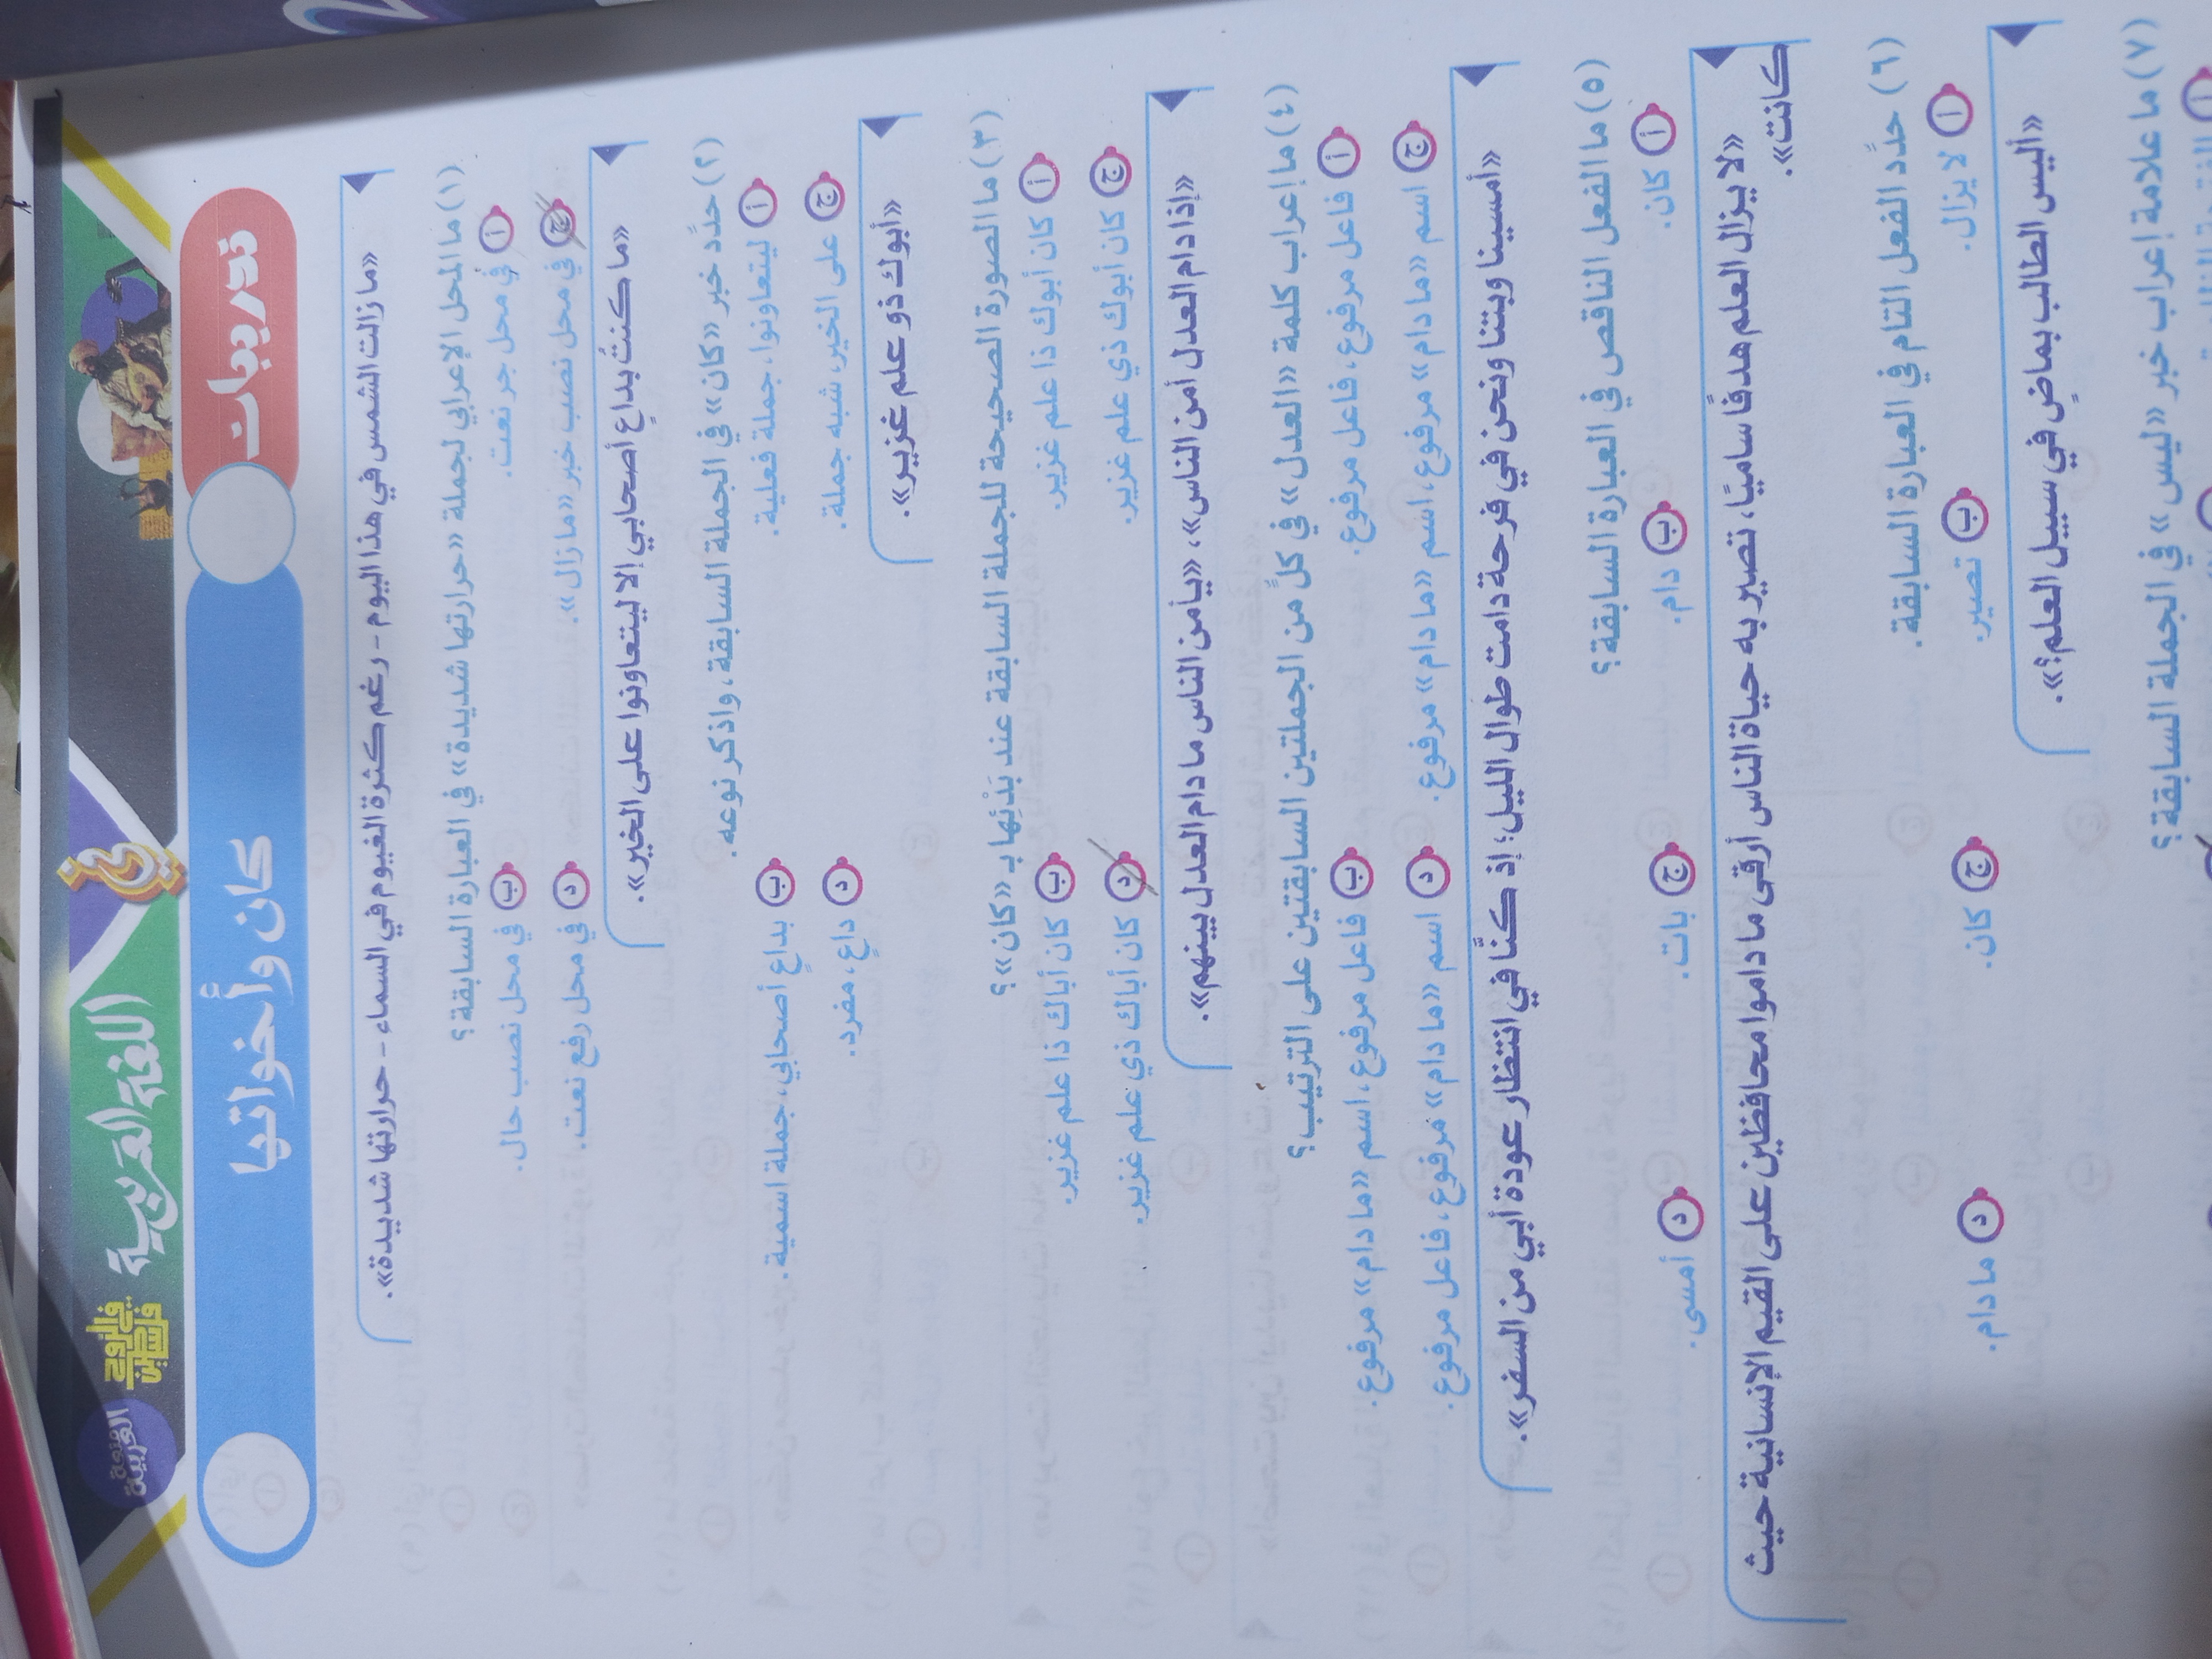 في
اللغة العربية
في الروح فلسطين
متعة العربية
تدريبات
كان وأخواتها
«ما زالت الشمس في هذا اليوم - رغم كثرة الغيوم في السماء - حرارتها شديدة».
(١) ما المحل الإعرابي لجملة «حرارتها شديدة» في العبارة السابقة؟
أ في محل جر نعت. ب في محل نصب حال.
ج في محل نصب خبر «ما زال». د في محل رفع نعت.
«ما كنتُ بداعٍ أصحابي إلا ليتعاونوا على الخير».
(٢) حدِّد خبر «كان» في الجملة السابقة، واذكر نوعه.
أ ليتعاونوا، جملة فعلية. ب بداعٍ أصحابي، جملة اسمية.
ج على الخير، شبه جملة. د داعٍ، مفرد.
«أبوك ذو علم غزير».
(٣) ما الصورة الصحيحة للجملة السابقة عند بَدْئِها بـ «كان»؟
أ كان أبوك ذا علم غزير. ب كان أباك ذا علم غزير.
ج كان أبوك ذي علم غزير. د كان أباك ذي علم غزير.
«إذا دام العدل أمن الناس»، «يأمن الناس ما دام العدل بينهم».
(٤) ما إعراب كلمة «العدل» في كلٍّ من الجملتين السابقتين على الترتيب؟
أ فاعل مرفوع، فاعل مرفوع. ب فاعل مرفوع، اسم «ما دام» مرفوع.
ج اسم «ما دام» مرفوع، اسم «ما دام» مرفوع. د اسم «ما دام» مرفوع، فاعل مرفوع.
«أمسينا وبتنا ونحن في فرحة دامت طوال الليل؛ إذ كنَّا في انتظار عودة أبي من السفر».
(٥) ما الفعل الناقص في العبارة السابقة؟
أ كان. ب دام. ج بات. د أمسى.
«لا يزال العلم هدفًا ساميًا، تصير به حياة الناس أرقى ما داموا محافظين على القيم الإنسانية حيث
كانت».
(٦) حدِّد الفعل التام في العبارة السابقة.
أ لا يزال. ب تصير. ج كان. د ما دام.
«أليس الطالب بماضٍ في سبيل العلم؟».
(٧) ما علامة إعراب خبر «ليس» في الجملة السابقة؟